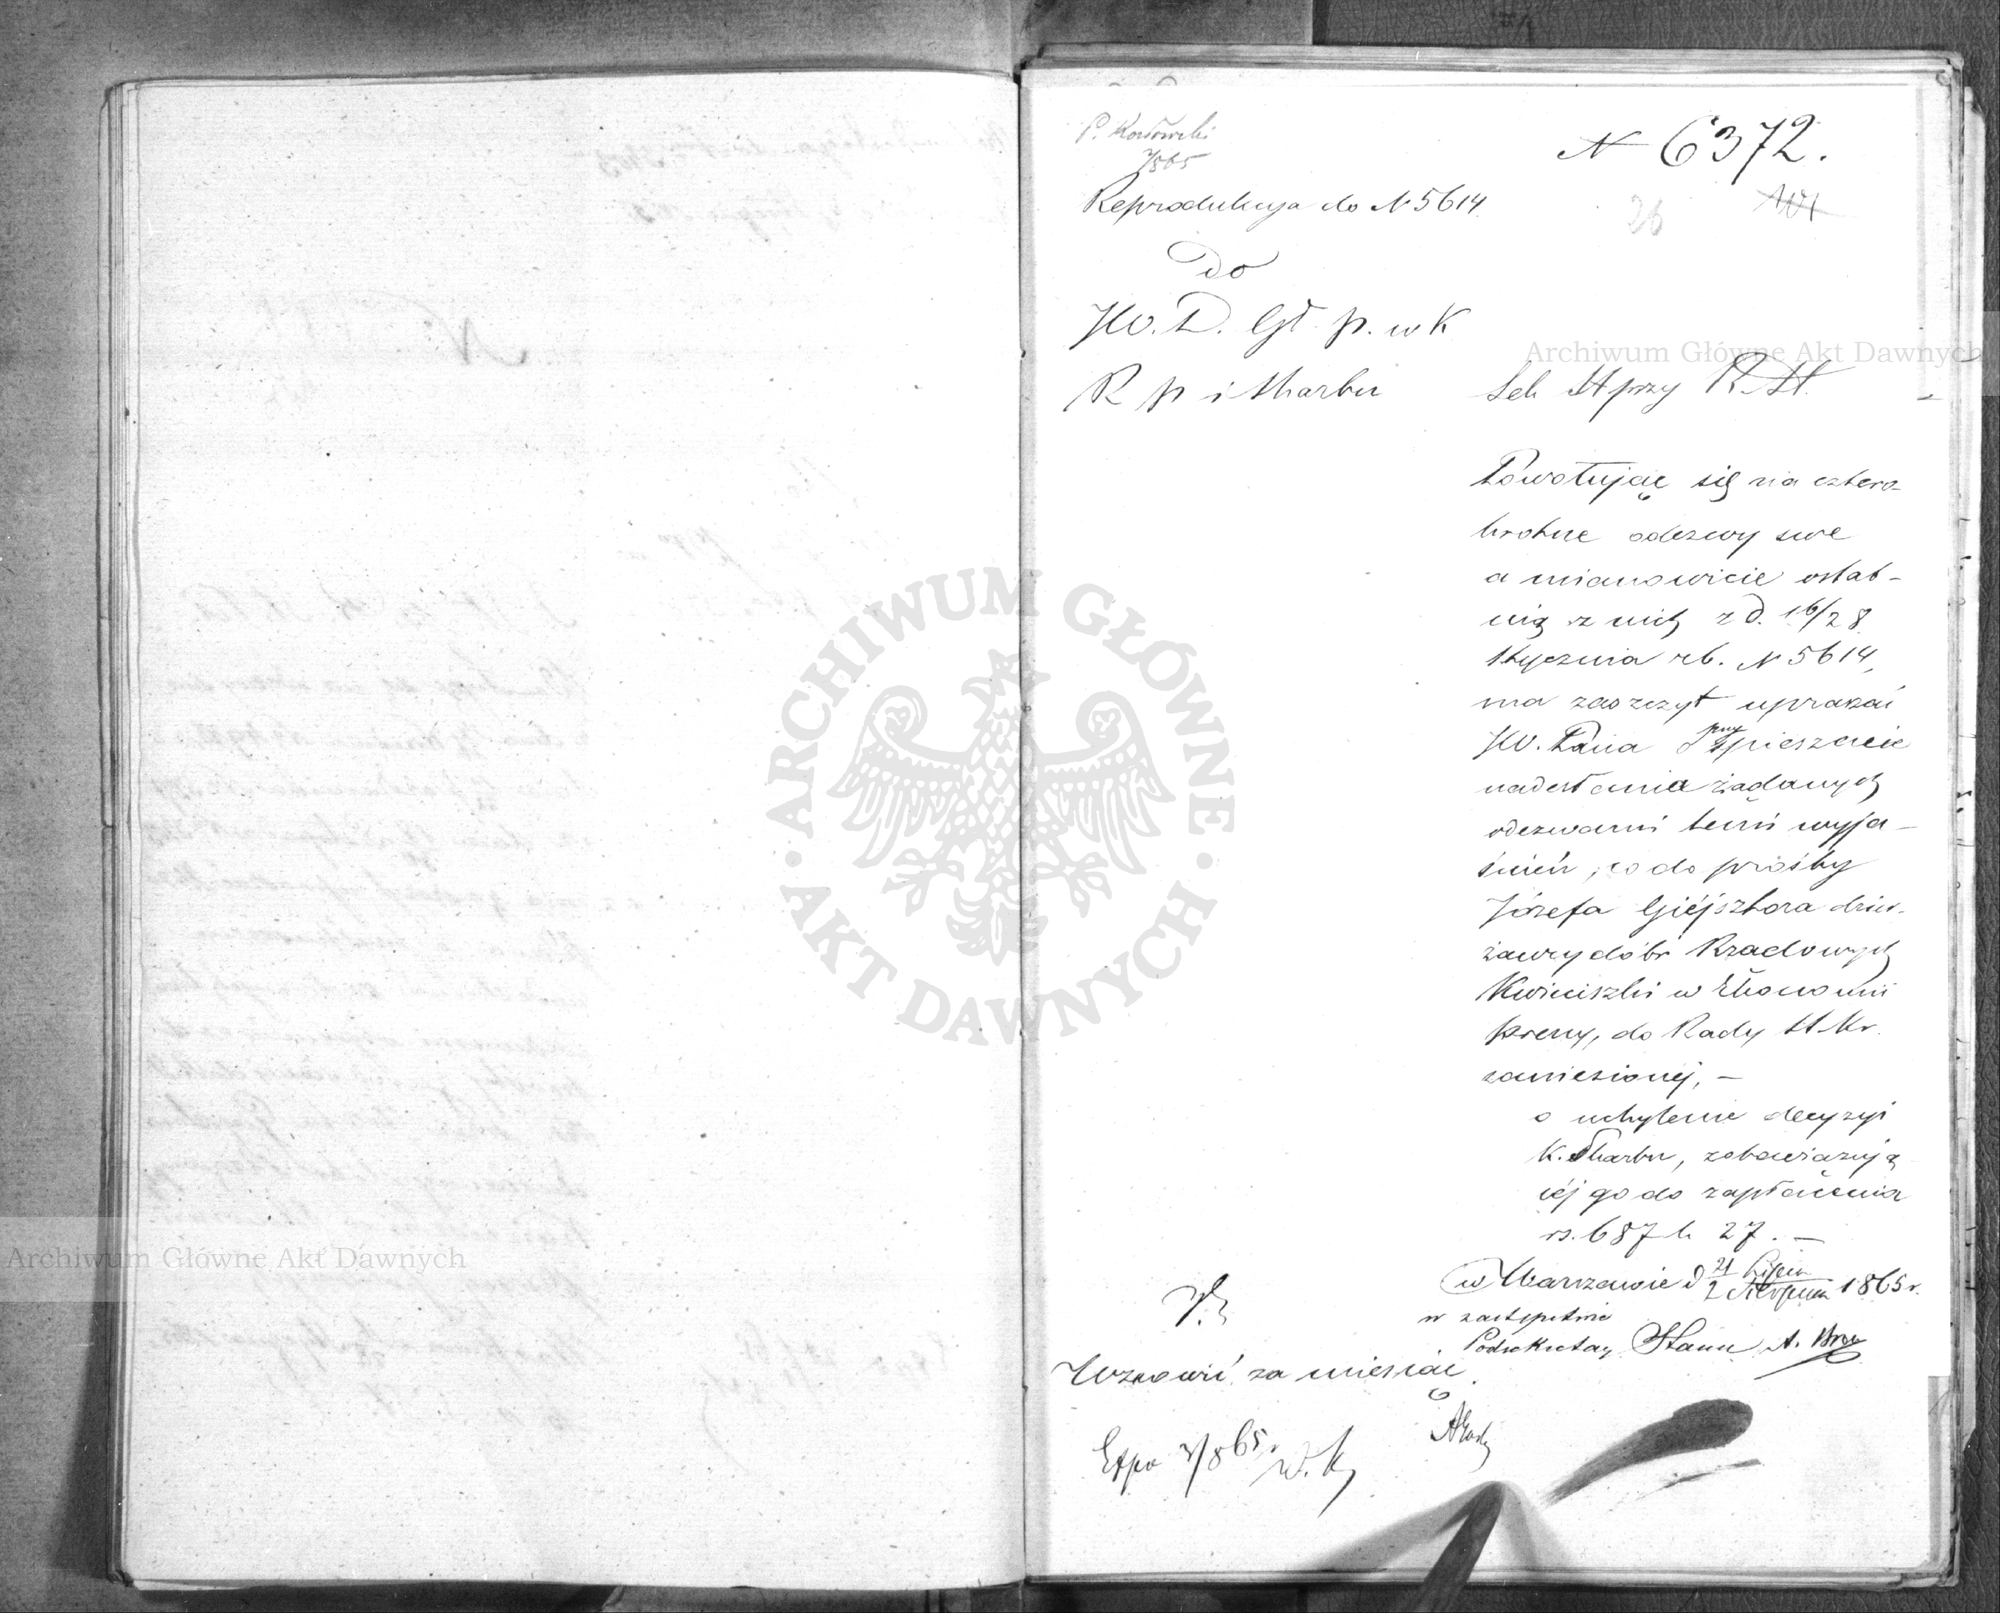 N 6372.
26
Reprodukcya do N 5614.
Do
JW. D. Gł. p. w K
R P i Skarbu
Sek St przy R. St.
Powołując się na cztero-
krotne odezwy swe
a mianowicie ostat-
nią z nich z d. 16/28
Stycznia rb. N 5614,
ma zaszczyt upraszać
JW. Pana o przyspieszenie
nadesłania żądanych
odezwami temi wyja-
śnień, co do prośby
Józefa Giejsztora dzier-
żawcy dóbr Rządowych
Kwieciszki w Ekonomii
Preny, do Rady St. Kr.
zaniesionej, —
o uchylenie decyzyi
K. Skarbu, zobowiązują
cej go do zapłacenia
rs. 687 k 27. —
w Warszawie d 21 Lipca / 2 Sierpnia 1865 r.
w zastępstwie
Podsekretarz Stanu A.
Wznowić za miesiąc.
Exp 3/8 65 r.
W. K
Archiwum Główne Akt Dawnych
Archiwum Główne Akt Dawnych
ARCHIWUM GŁÓWNE
AKT DAWNYCH